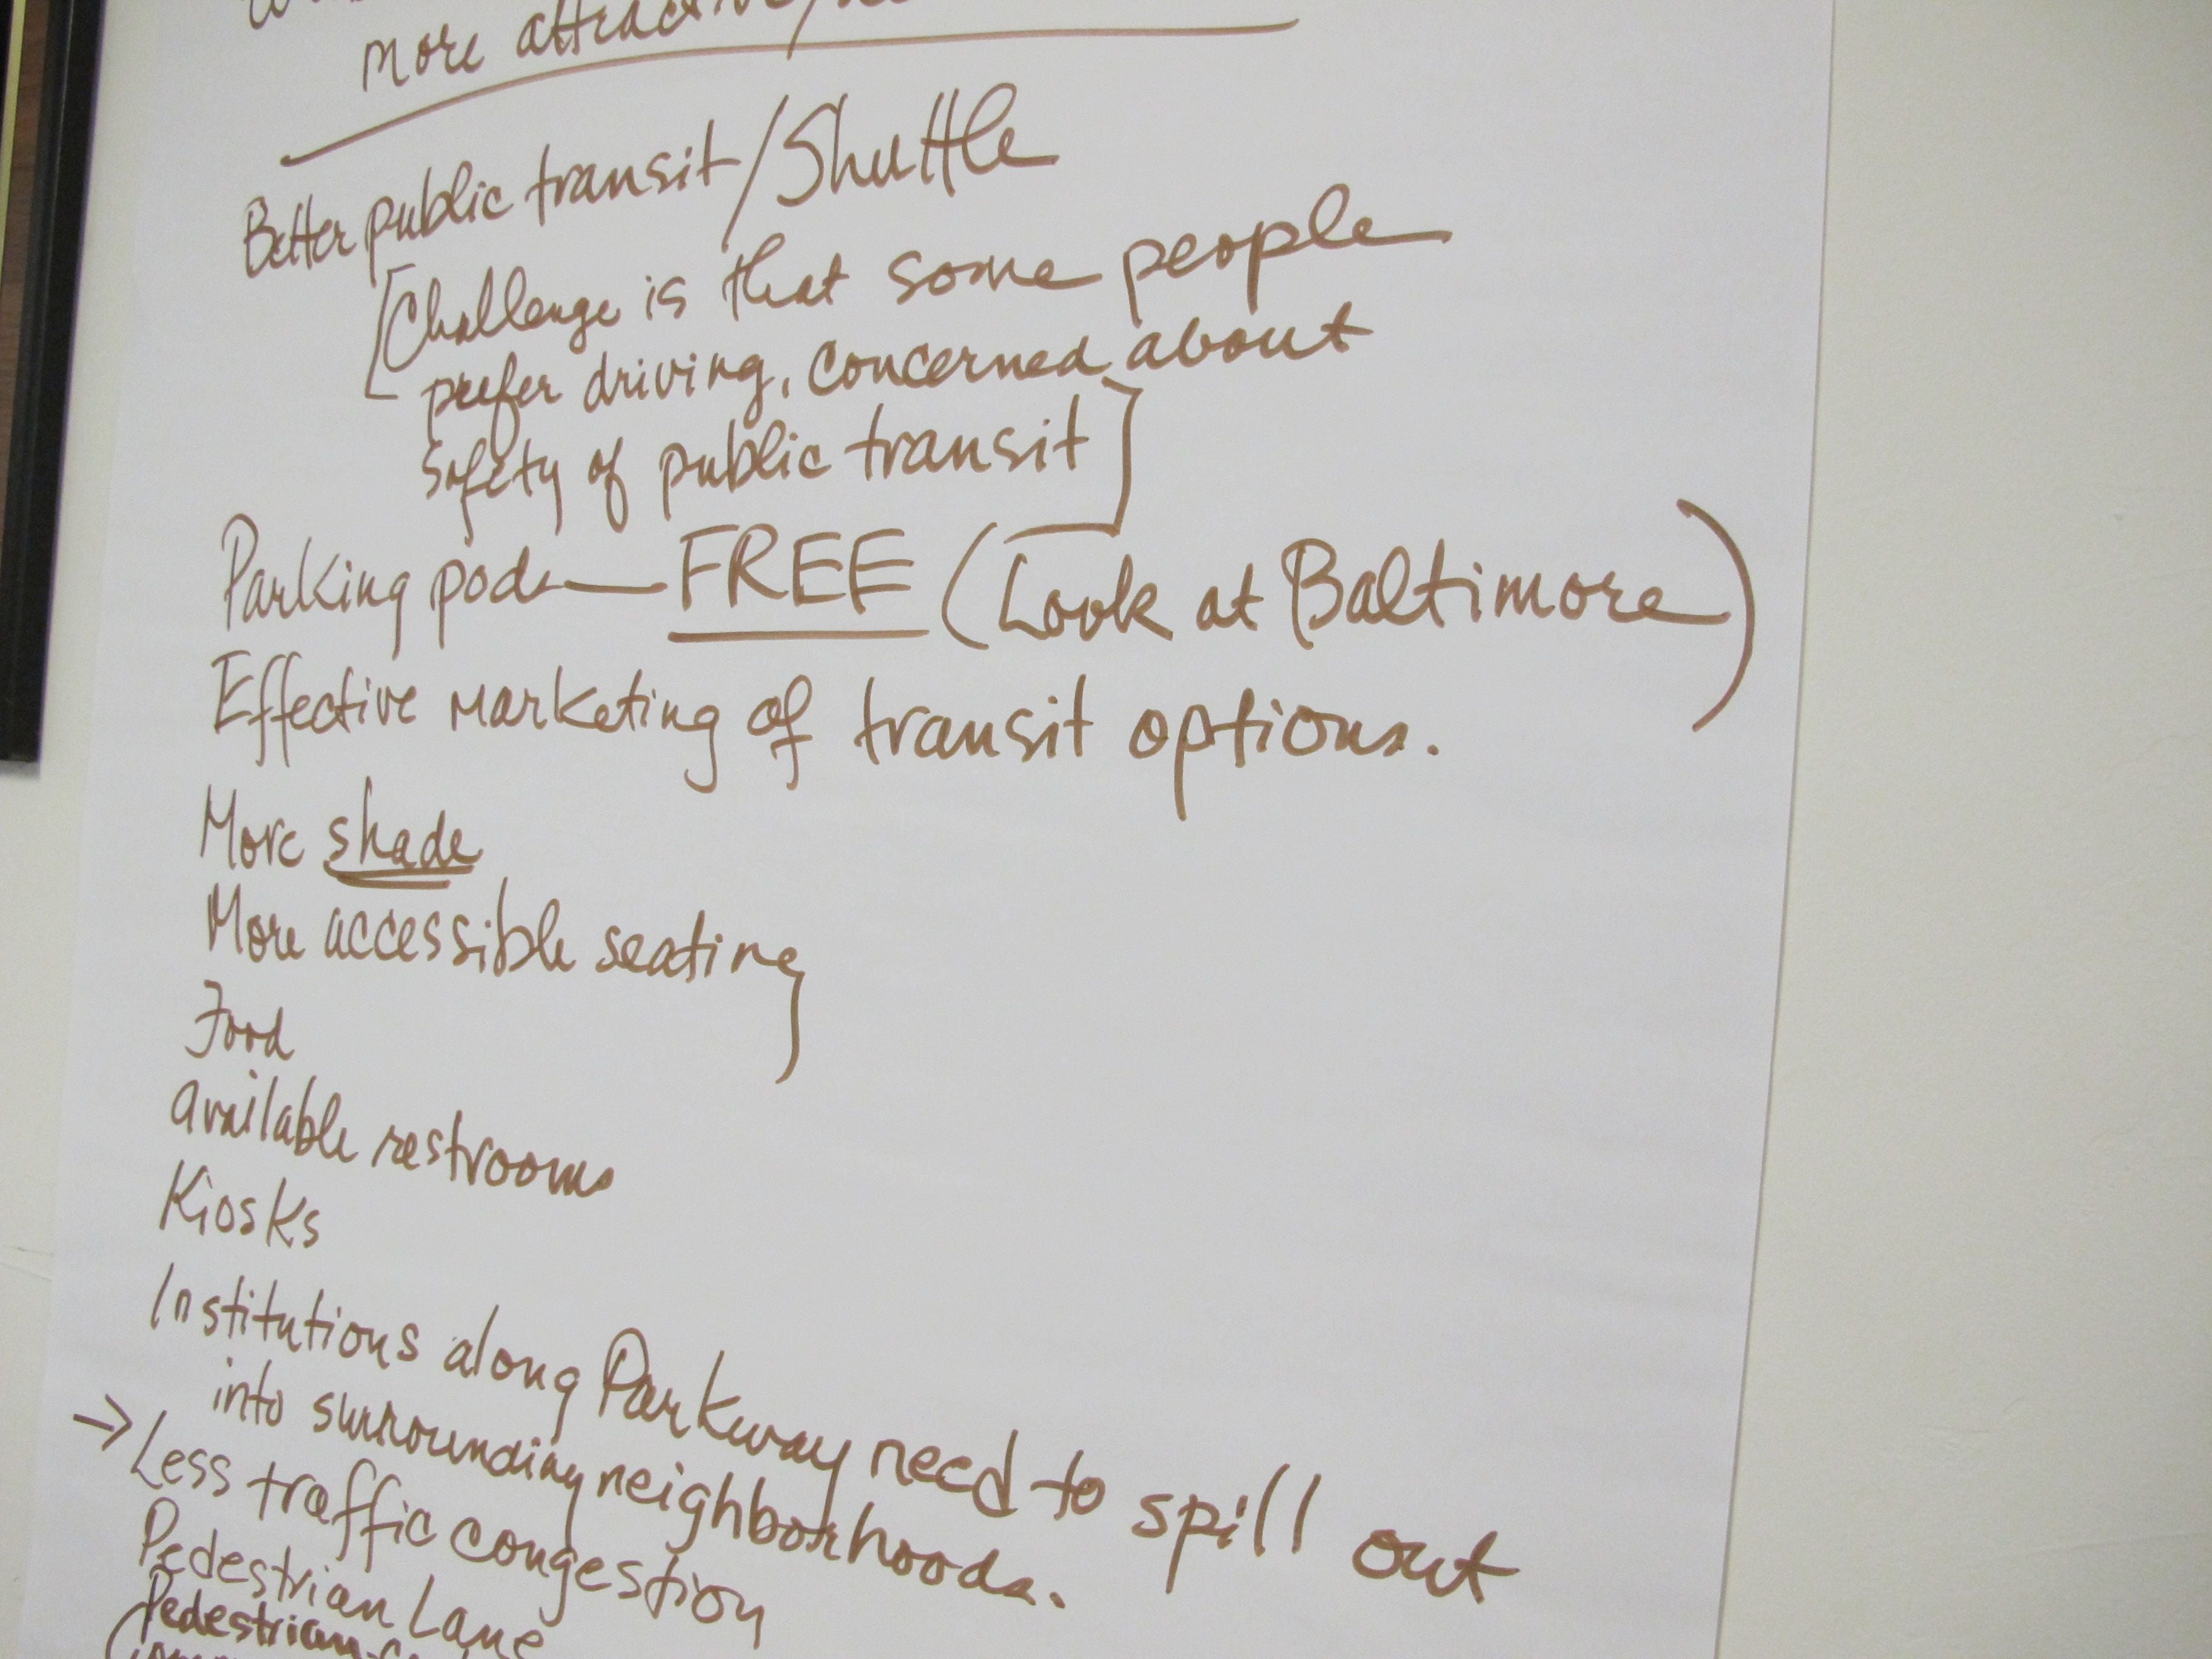 more attractive/
Better public transit/Shuttle
[Challenge is that some people
prefer driving, concerned about
safety of public transit]
Parking pods — FREE (Look at Baltimore)
Effective marketing of transit options.
More shade
More accessible seating
Food
available restrooms
Kiosks
Institutions along Parkway need to spill out
into surrounding neighborhoods.
→ Less traffic congestion
Pedestrian Lane
Pedestrian